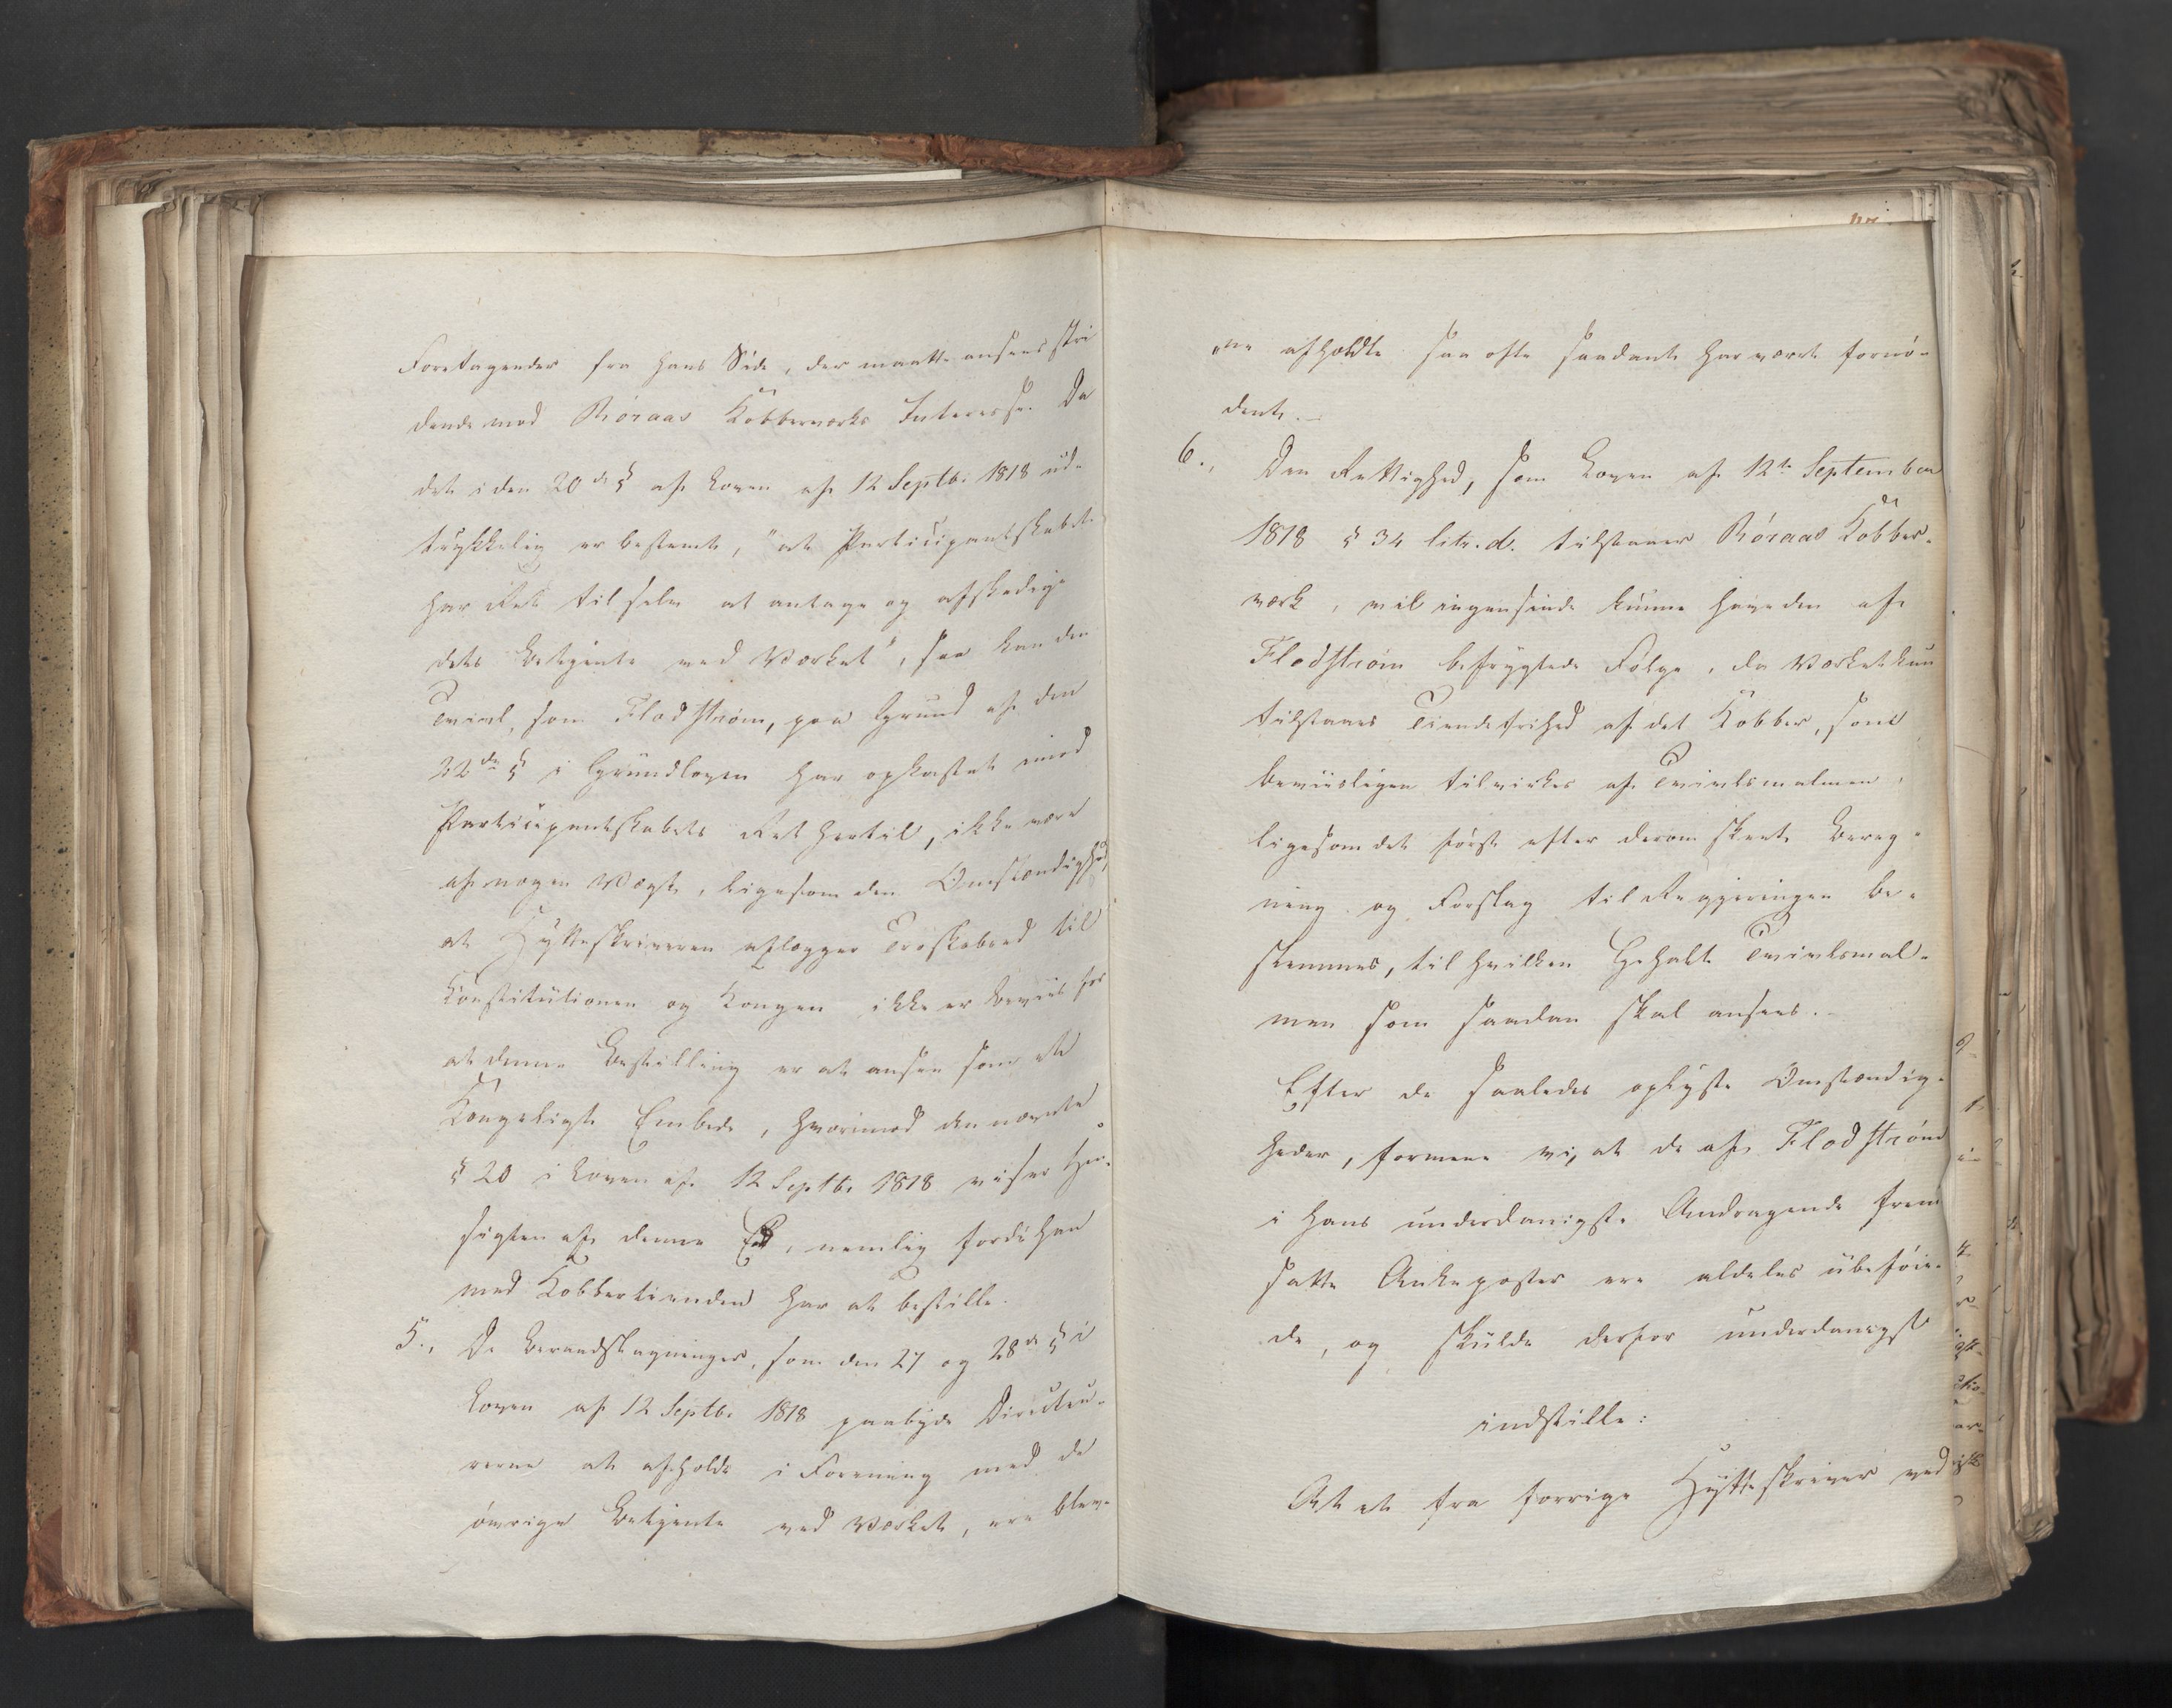 Foretagender fra hans Side, der maatte ansees stri
dende mod Röraas Kobberværks Interesse. Da
det i den 20de § af Loven af 12 Septbr 1818 ud-
trykkelig er bestemt, "at Participantskabet
har Ret til selv at antage og afskedige
dets Betjente ved Værket", saa kan den
Tvivl, som Flodstrøm, paa Grund af den
22de § i Grundloven har opkastet imod
Participantskabets Ret hertil, ikke være
af nogen Vægt, ligesom den Omstændighed,
at Hytteskriveren aflægger Troskabseed til
Konstitutionen og Kongen ikke er Beviis for
at denne Bestilling er at ansee som et
Kongeligt Embede, hvorimod den nævnte
§ 20 i Loven af 12 Septbr 1818 viser Hen-
sigten af denne Eed, nemlig fordi han
med Kobbertienden har at bestille.
5., De Beraadslagninger, som den 27 og 28de § i
Loven af 12 Septbr 1818 paabyde Directeu-
rerne at afholde i Forening med de
øvrige Betjente ved Værket, ere bleve-
"ne afholdte saa ofte saadant har været fornø-
dent.
6., Den Rettighed, som Loven af 12te September
1818 § 34 litr. d. tilstaaer Röraas Kobber-
værk, vil ingensinde kunne have den af
Flodstrøm befrygtede Følge, da Værket kun
tilstaaes Tiendefrihed af det Kobber, som
beviisligen tilvirkes af Tvivlsmalmen,
ligesom det først efter derom skeet Bereg-
ning og Forslag til Regjeringen be-
stemmes, til hvilken Gehalt Tvivlsmal-
men som saadan skal ansees.
Efter de saaledes oplyste Omstændig-
heder, formene vi, at de af Flodstrøm
i hans underdanigste Andragende frem
satte Ankeposter ere aldeles ubeføie-
de, og skulde derfor underdanigst
indstille:
At et fra forrige Hytteskriver ved